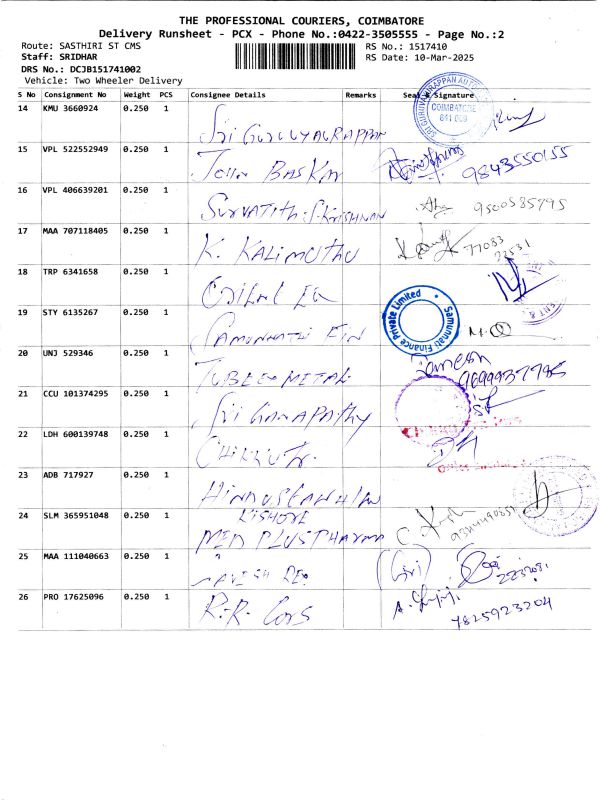 THE PROFESSIONAL COURIERS, COIMBATORE
Delivery Runsheet - PCX - Phone No.:0422-3505555 - Page No.:2
Route: SASTHIRI ST CMS RS No.: 1517410
Staff: SRIDHAR RS Date: 10-Mar-2025
DRS No.: DCJB151741002
Vehicle: Two Wheeler Delivery
S No Consignment No Weight PCS Consignee Details Remarks Seal & Signature
14 KMU 3660924 0.250 1 Sri Guruvyaurappan
COIMBATORE
641 009
15 VPL 522552949 0.250 1 John Baskar 9843550155
16 VPL 406639201 0.250 1 S.Krishnan 9500585795
17 MAA 707118405 0.250 1 K. Kalimuthu 77083
22531
18 TRP 6341658 0.250 1
19 STY 6135267 0.250 1 Samunnati Fin
Samunnati Finance Private Limited
20 UNJ 529346 0.250 1 Tubeemetal
21 CCU 101374295 0.250 1 Sri Ganapathy
22 LDH 600139748 0.250 1
23 ADB 717927 0.250 1
24 SLM 365951048 0.250 1 Kishore
Med Plus Pharma
25 MAA 111040663 0.250 1 (Giri)
26 PRO 17625096 0.250 1 R.R. Cors
7825923204